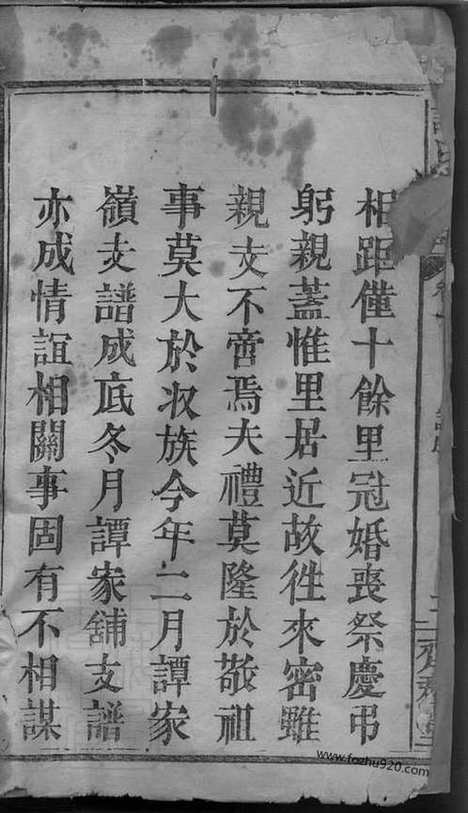 相距僅十餘里冠婚喪祭慶弔
躬親蓋惟里居近故徃來密雖
親支不啻焉夫禮莫隆於敬祖
事莫大於收族今年二月譚家
嶺支譜成底冬月譚家鋪支譜
亦成情誼相關事固有不相謀
www.fozhu920.com